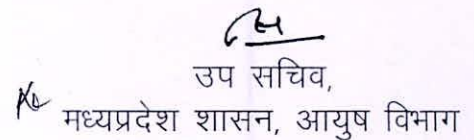 उप सचिव,
मध्यप्रदेश शासन, आयुष विभाग